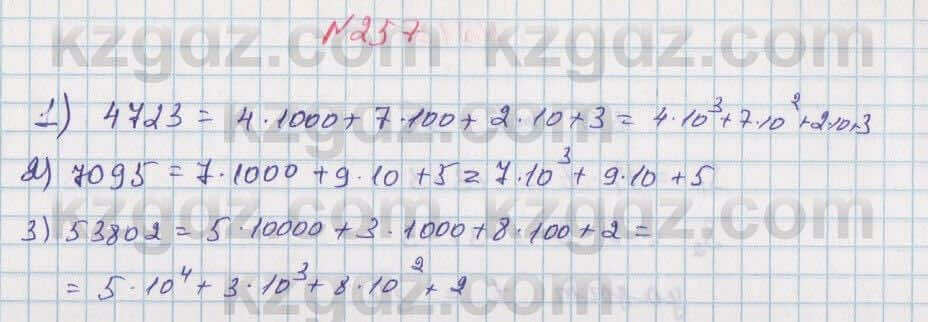 №257
1) 4723 = 4·1000 + 7·100 + 2·10 + 3 = 4·10³ + 7·10² + 2·10 + 3
2) 7095 = 7·1000 + 9·10 + 5 = 7·10³ + 9·10 + 5
3) 53802 = 5·10000 + 3·1000 + 8·100 + 2 =
= 5·10⁴ + 3·10³ + 8·10² + 2
kzgdz.com kzgdz.com
kzgdz.com kzgdz.com
kzgdz.com kzgdz.com
kzgdz.com kzgdz.com